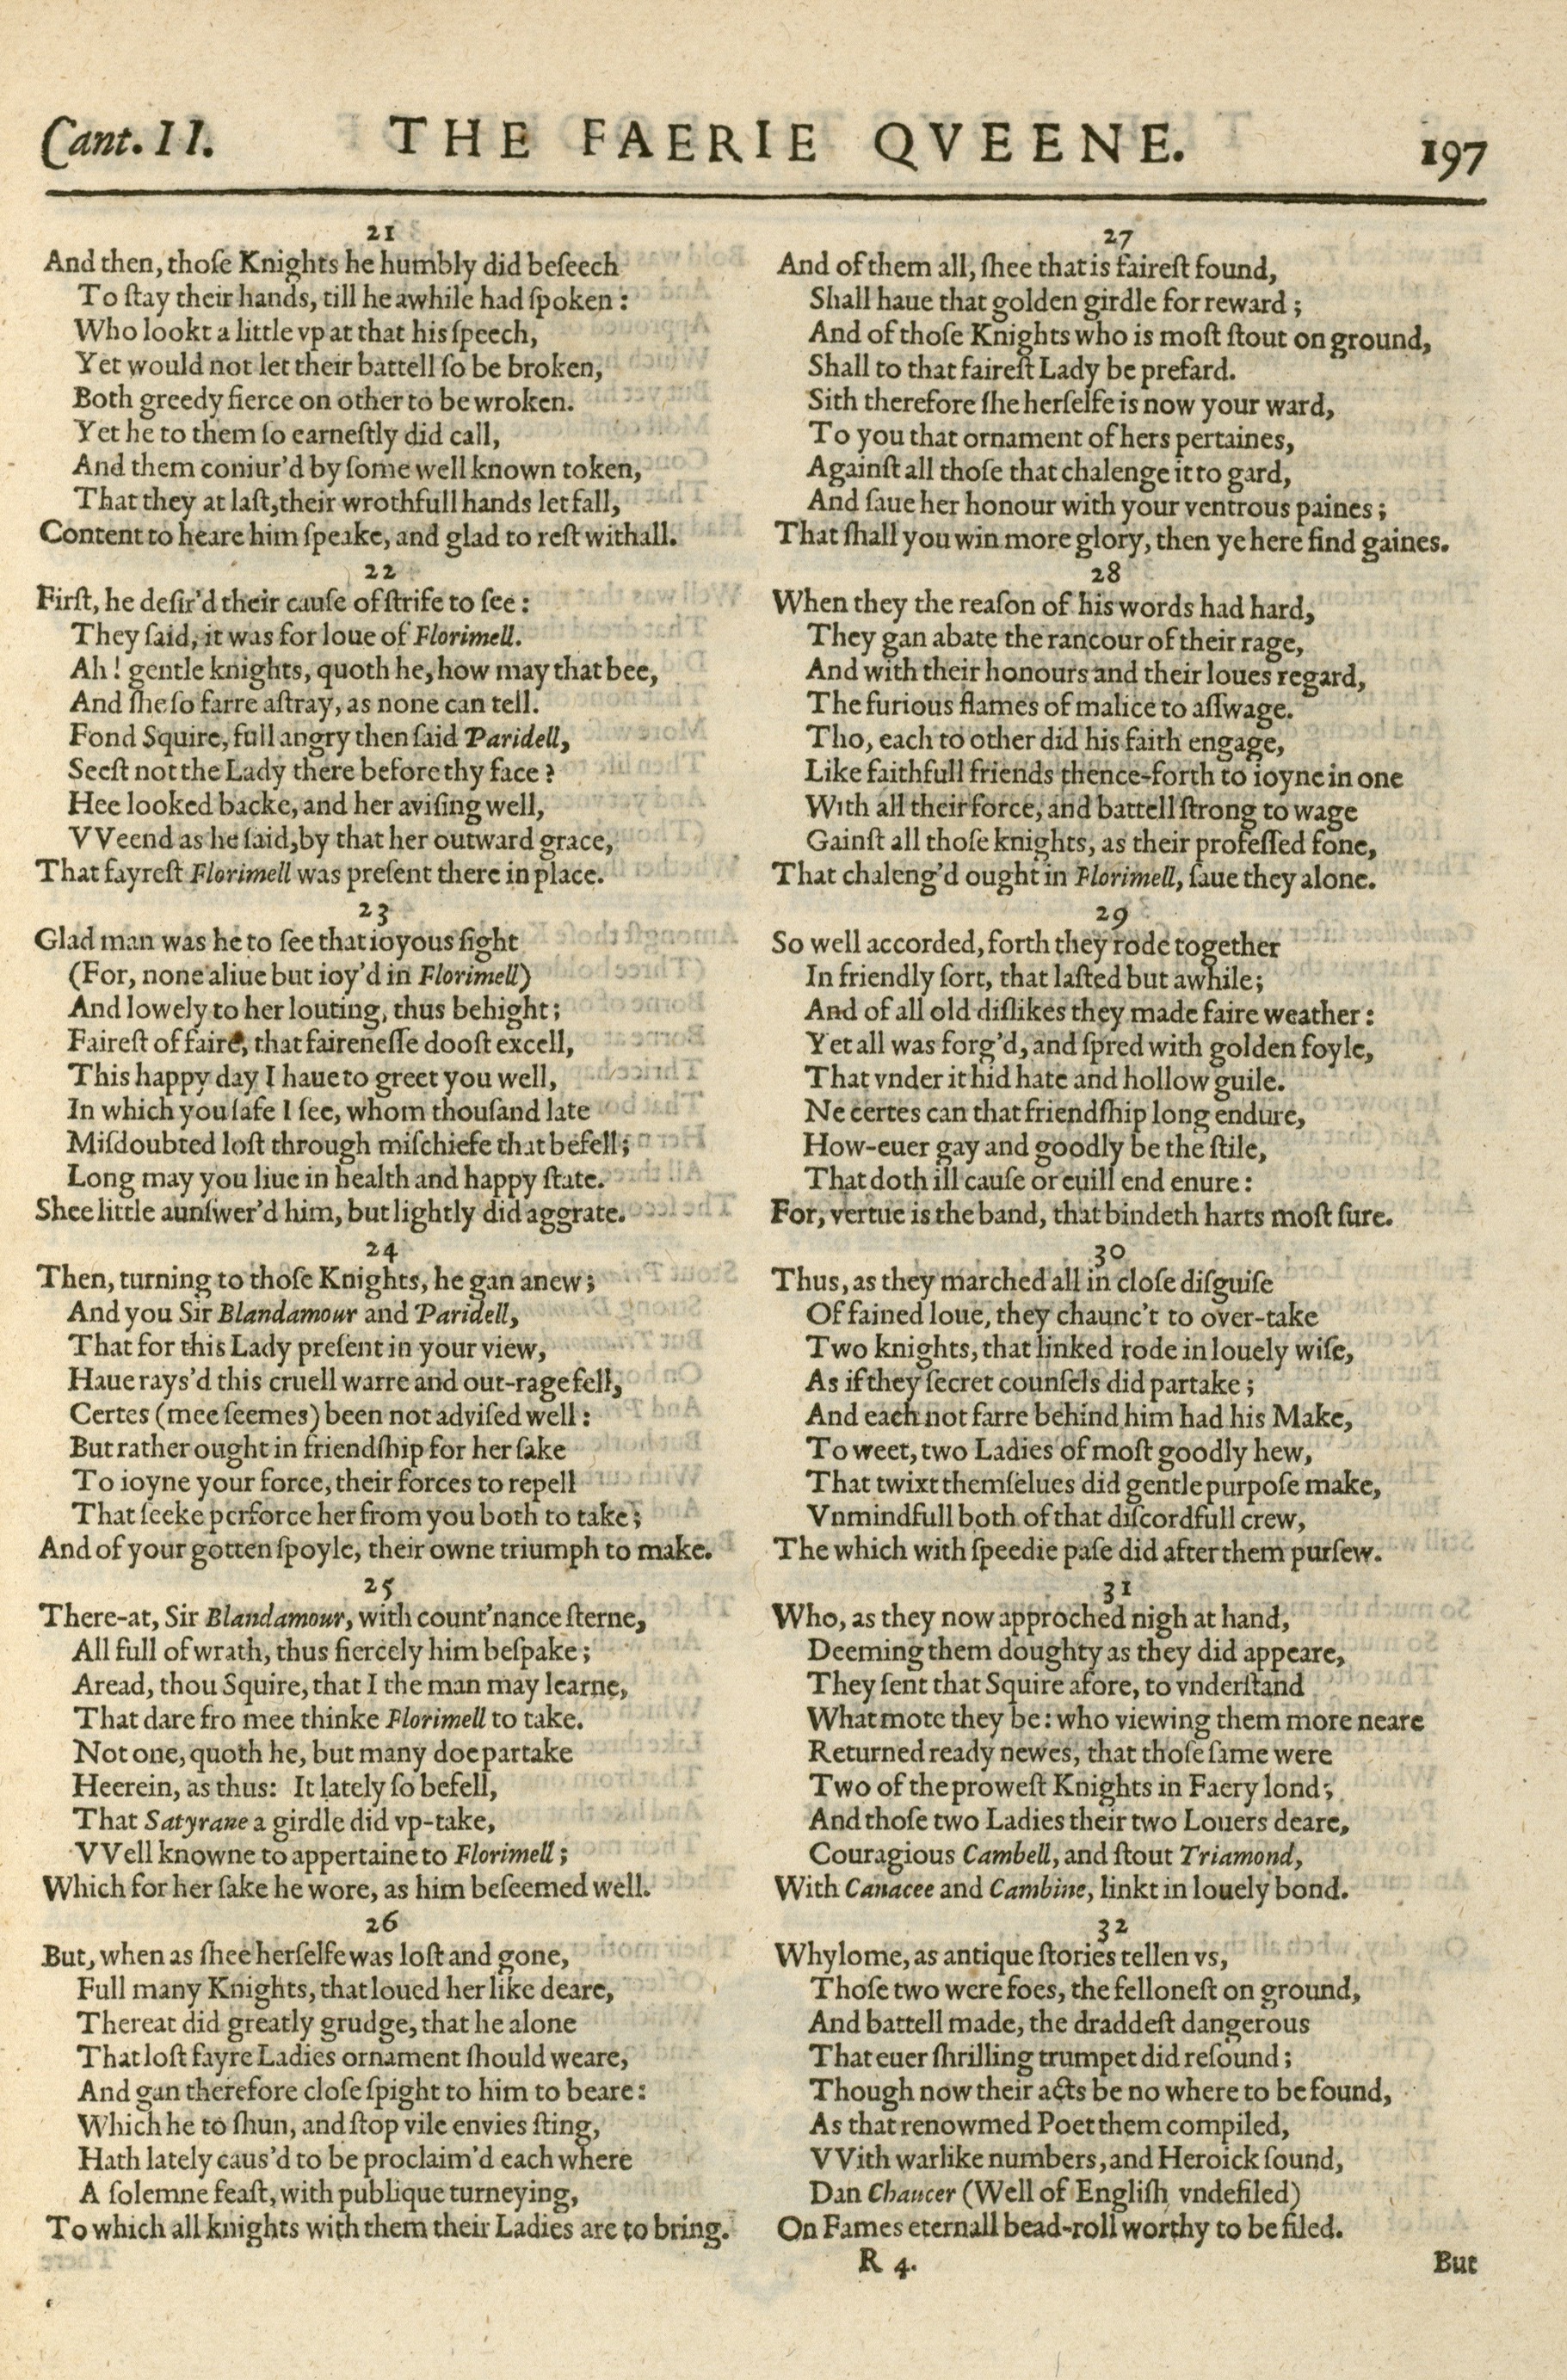 Cant. II. THE FAERIE QVEENE. 197
21
And then, thoſe Knights he humbly did beſeech
To ſtay their hands, till he awhile had ſpoken:
Who lookt a little vp at that his ſpeech,
Yet would not let their battell ſo be broken,
Both greedy fierce on other to be wroken.
Yet he to them ſo earneſtly did call,
And them coniur'd by ſome well known token,
That they at laſt, their wrothfull hands let fall,
Content to heare him ſpeake, and glad to reſt withall.
22
Firſt, he deſir'd their cauſe of ſtrife to ſee:
They ſaid, it was for loue of Florimell.
Ah! gentle knights, quoth he, how may that bee,
And ſhe ſo farre aſtray, as none can tell.
Fond Squire, full angry then ſaid Paridell,
Seeſt not the Lady there before thy face?
Hee looked backe, and her aviſing well,
VVeend as he ſaid, by that her outward grace,
That fayreſt Florimell was preſent there in place.
23
Glad man was he to ſee that ioyous ſight
(For, none aliue but ioy'd in Florimell)
And lowely to her louting, thus behight;
Faireſt of faire, that faireneſſe dooſt excell,
This happy day I haue to greet you well,
In which you ſafe I ſee, whom thouſand late
Miſdoubted loſt through miſchiefe that befell;
Long may you liue in health and happy ſtate.
Shee little aunſwer'd him, but lightly did aggrate.
24
Then, turning to thoſe Knights, he gan anew;
And you Sir Blandamour and Paridell,
That for this Lady preſent in your view,
Haue rays'd this cruell warre and out-rage fell,
Certes (mee ſeemes) been not adviſed well:
But rather ought in friendſhip for her ſake
To ioyne your force, their forces to repell
That ſeeke perforce her from you both to take;
And of your gotten ſpoyle, their owne triumph to make.
25
There-at, Sir Blandamour, with count'nance ſterne,
All full of wrath, thus fiercely him beſpake;
Aread, thou Squire, that I the man may learne,
That dare fro mee thinke Florimell to take.
Not one, quoth he, but many doe partake
Heerein, as thus: It lately ſo befell,
That Satyrane a girdle did vp-take,
VVell knowne to appertaine to Florimell;
Which for her ſake he wore, as him beſeemed well.
26
But, when as ſhee herſelfe was loſt and gone,
Full many Knights, that loued her like deare,
Thereat did greatly grudge, that he alone
That loſt fayre Ladies ornament ſhould weare,
And gan therefore cloſe ſpight to him to beare:
Which he to ſhun, and ſtop vile envies ſting,
Hath lately caus'd to be proclaim'd each where
A ſolemne feaſt, with publique turneying,
To which all knights with them their Ladies are to bring.
27
And of them all, ſhee that is faireſt found,
Shall haue that golden girdle for reward;
And of thoſe Knights who is moſt ſtout on ground,
Shall to that faireſt Lady be prefard.
Sith therefore ſhe herſelfe is now your ward,
To you that ornament of hers pertaines,
Againſt all thoſe that chalenge it to gard,
And ſaue her honour with your ventrous paines;
That ſhall you win more glory, then ye here find gaines.
28
When they the reaſon of his words had hard,
They gan abate the rancour of their rage,
And with their honours and their loues regard,
The furious flames of malice to aſſwage.
Tho, each to other did his faith engage,
Like faithfull friends thence-forth to ioyne in one
With all their force, and battell ſtrong to wage
Gainſt all thoſe knights, as their profeſſed fone,
That chaleng'd ought in Florimell, ſaue they alone.
29
So well accorded, forth they rode together
In friendly ſort, that laſted but awhile;
And of all old diſlikes they made faire weather:
Yet all was forg'd, and ſpred with golden foyle,
That vnder it hid hate and hollow guile.
Ne certes can that friendſhip long endure,
How-euer gay and goodly be the ſtile,
That doth ill cauſe or euill end enure:
For, vertue is the band, that bindeth harts moſt ſure.
30
Thus, as they marched all in cloſe diſguiſe
Of fained loue, they chaunc't to over-take
Two knights, that linked rode in louely wiſe,
As if they ſecret counſels did partake;
And each not farre behind him had his Make,
To weet, two Ladies of moſt goodly hew,
That twixt themſelues did gentle purpoſe make,
Vnmindfull both of that diſcordfull crew,
The which with ſpeedie paſe did after them purſew.
31
Who, as they now approched nigh at hand,
Deeming them doughty as they did appeare,
They ſent that Squire afore, to vnderſtand
What mote they be: who viewing them more neare
Returned ready newes, that thoſe ſame were
Two of the proweſt Knights in Faery lond;
And thoſe two Ladies their two Louers deare,
Couragious Cambell, and ſtout Triamond,
With Canacee and Cambine, linkt in louely bond.
32
Whylome, as antique ſtories tellen vs,
Thoſe two were foes, the felloneſt on ground,
And battell made, the draddeſt dangerous
That euer ſhrilling trumpet did reſound;
Though now their acts be no where to be found,
As that renowmed Poet them compiled,
VVith warlike numbers, and Heroick ſound,
Dan Chaucer (Well of Engliſh vndefiled)
On Fames eternall bead-roll worthy to be filed.
R 4. But